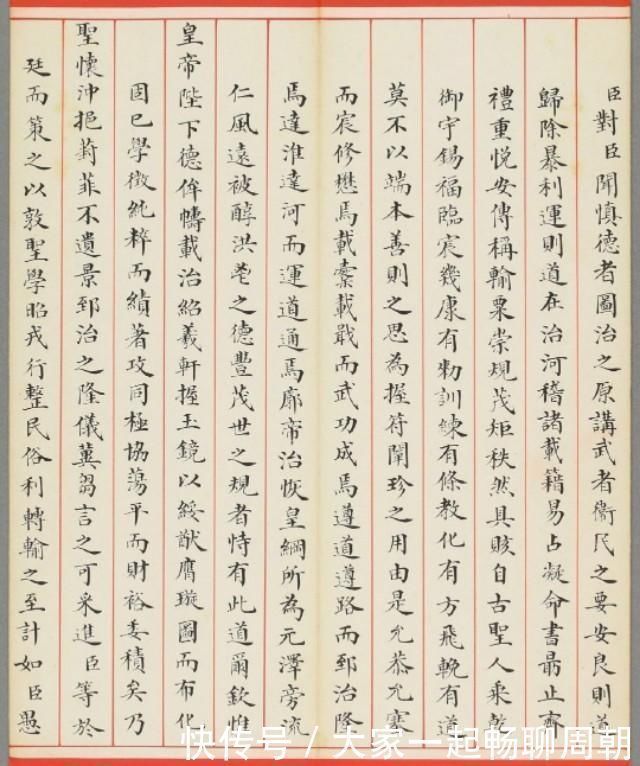 臣對臣聞慎德者圖治之原講武者衛民之要安良則道
歸除暴利運則道在治河稽諸載籍易占凝命書最止齊
禮重悅安傳稱輸粟崇規茂矩秩然具賅自古聖人乘乾
御宇錫福臨宸幾康有勑訓練有條教化有方飛輓有道
莫不以端本善則之思為握符闡珍之用由是允恭允塞
而宸修懋焉載櫜載戢而武功成焉遵道遵路而郅治隆
焉達淮達河而運道通焉廓帝治恢皇綱所為元澤旁流
仁風遠被醇洪鬯之德豐茂世之規者恃有此道爾欽惟
皇帝陛下德侔幬載治紹羲軒握玉鏡以綏猷膺璇圖而布化
固已學徵純粹而績著攻同極協蕩平而財裕委積矣乃
聖懷沖挹葑菲不遺景郅治之隆儀冀芻言之可采進臣等於
廷而策之以敦聖學昭戎行整民俗利轉輸之至計如臣愚
快传号/大家一起畅聊周朝